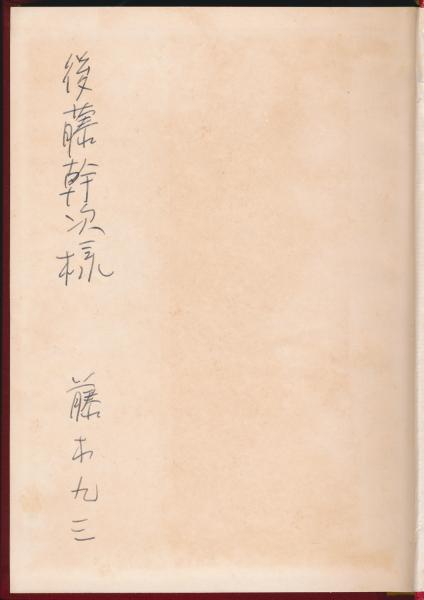 後藤幹次様
藤木九三